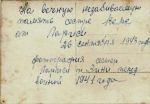 На вечную незабываемую
память сестре Вале
от Ларисы
26 сентября 1943 года
фотография семьи
Ларисы и Вити перед
войной 1941 года